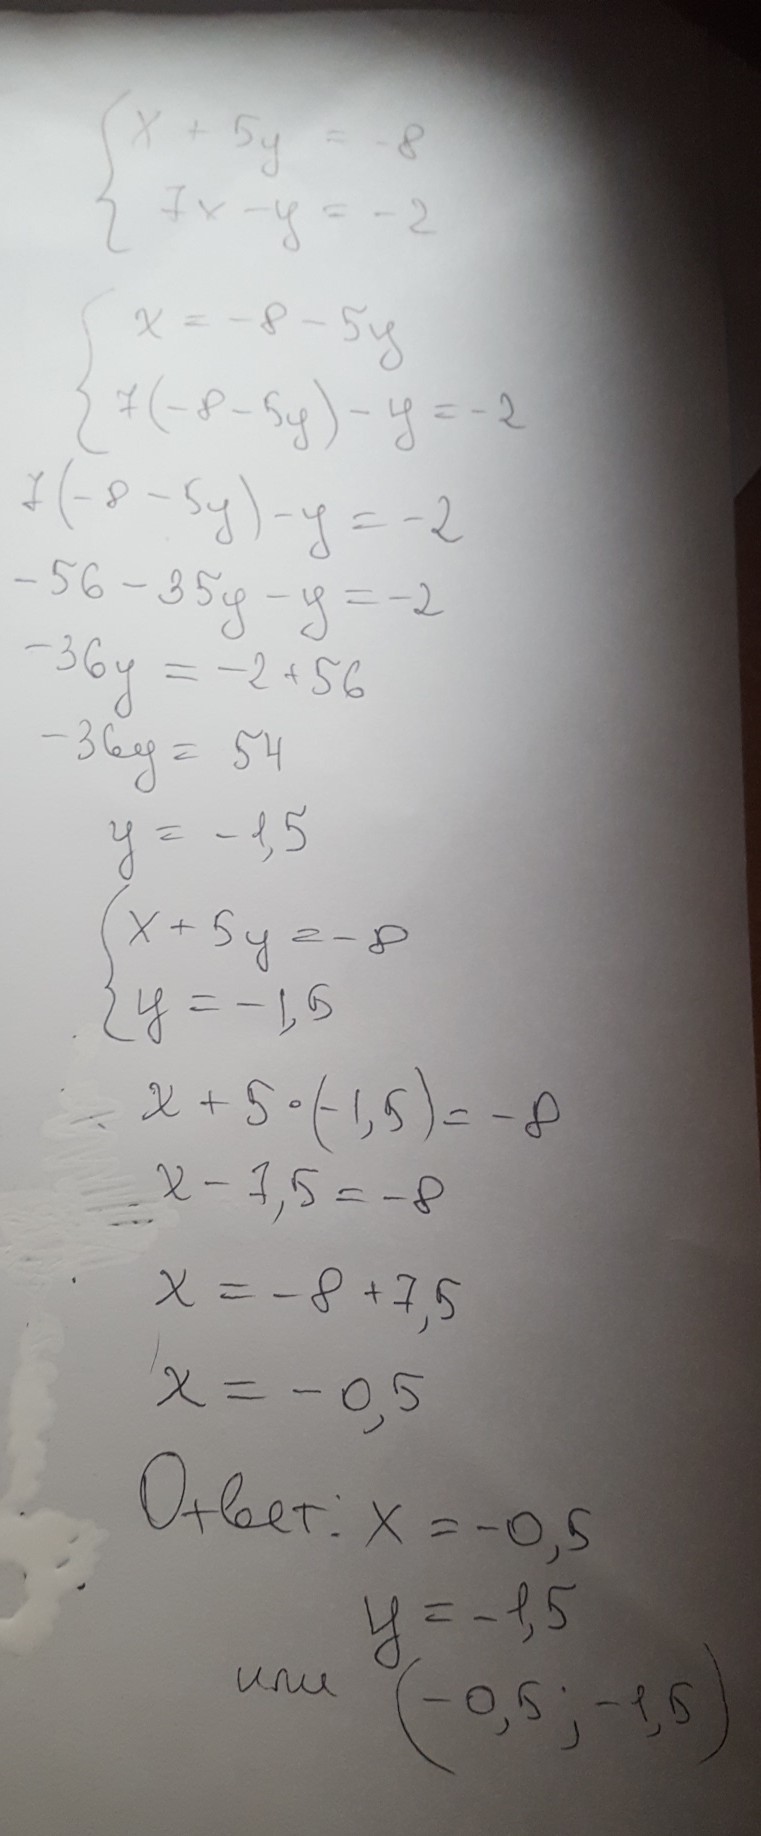 x + 5y = -8
7x - y = -2
x = -8 - 5y
7(-8 - 5y) - y = -2
7(-8 - 5y) - y = -2
-56 - 35y - y = -2
-36y = -2 + 56
-36y = 54
y = -1,5
x + 5y = -8
y = -1,5
x + 5 · (-1,5) = -8
x - 7,5 = -8
x = -8 + 7,5
x = -0,5
Ответ: x = -0,5
y = -1,5
или (-0,5; -1,5)